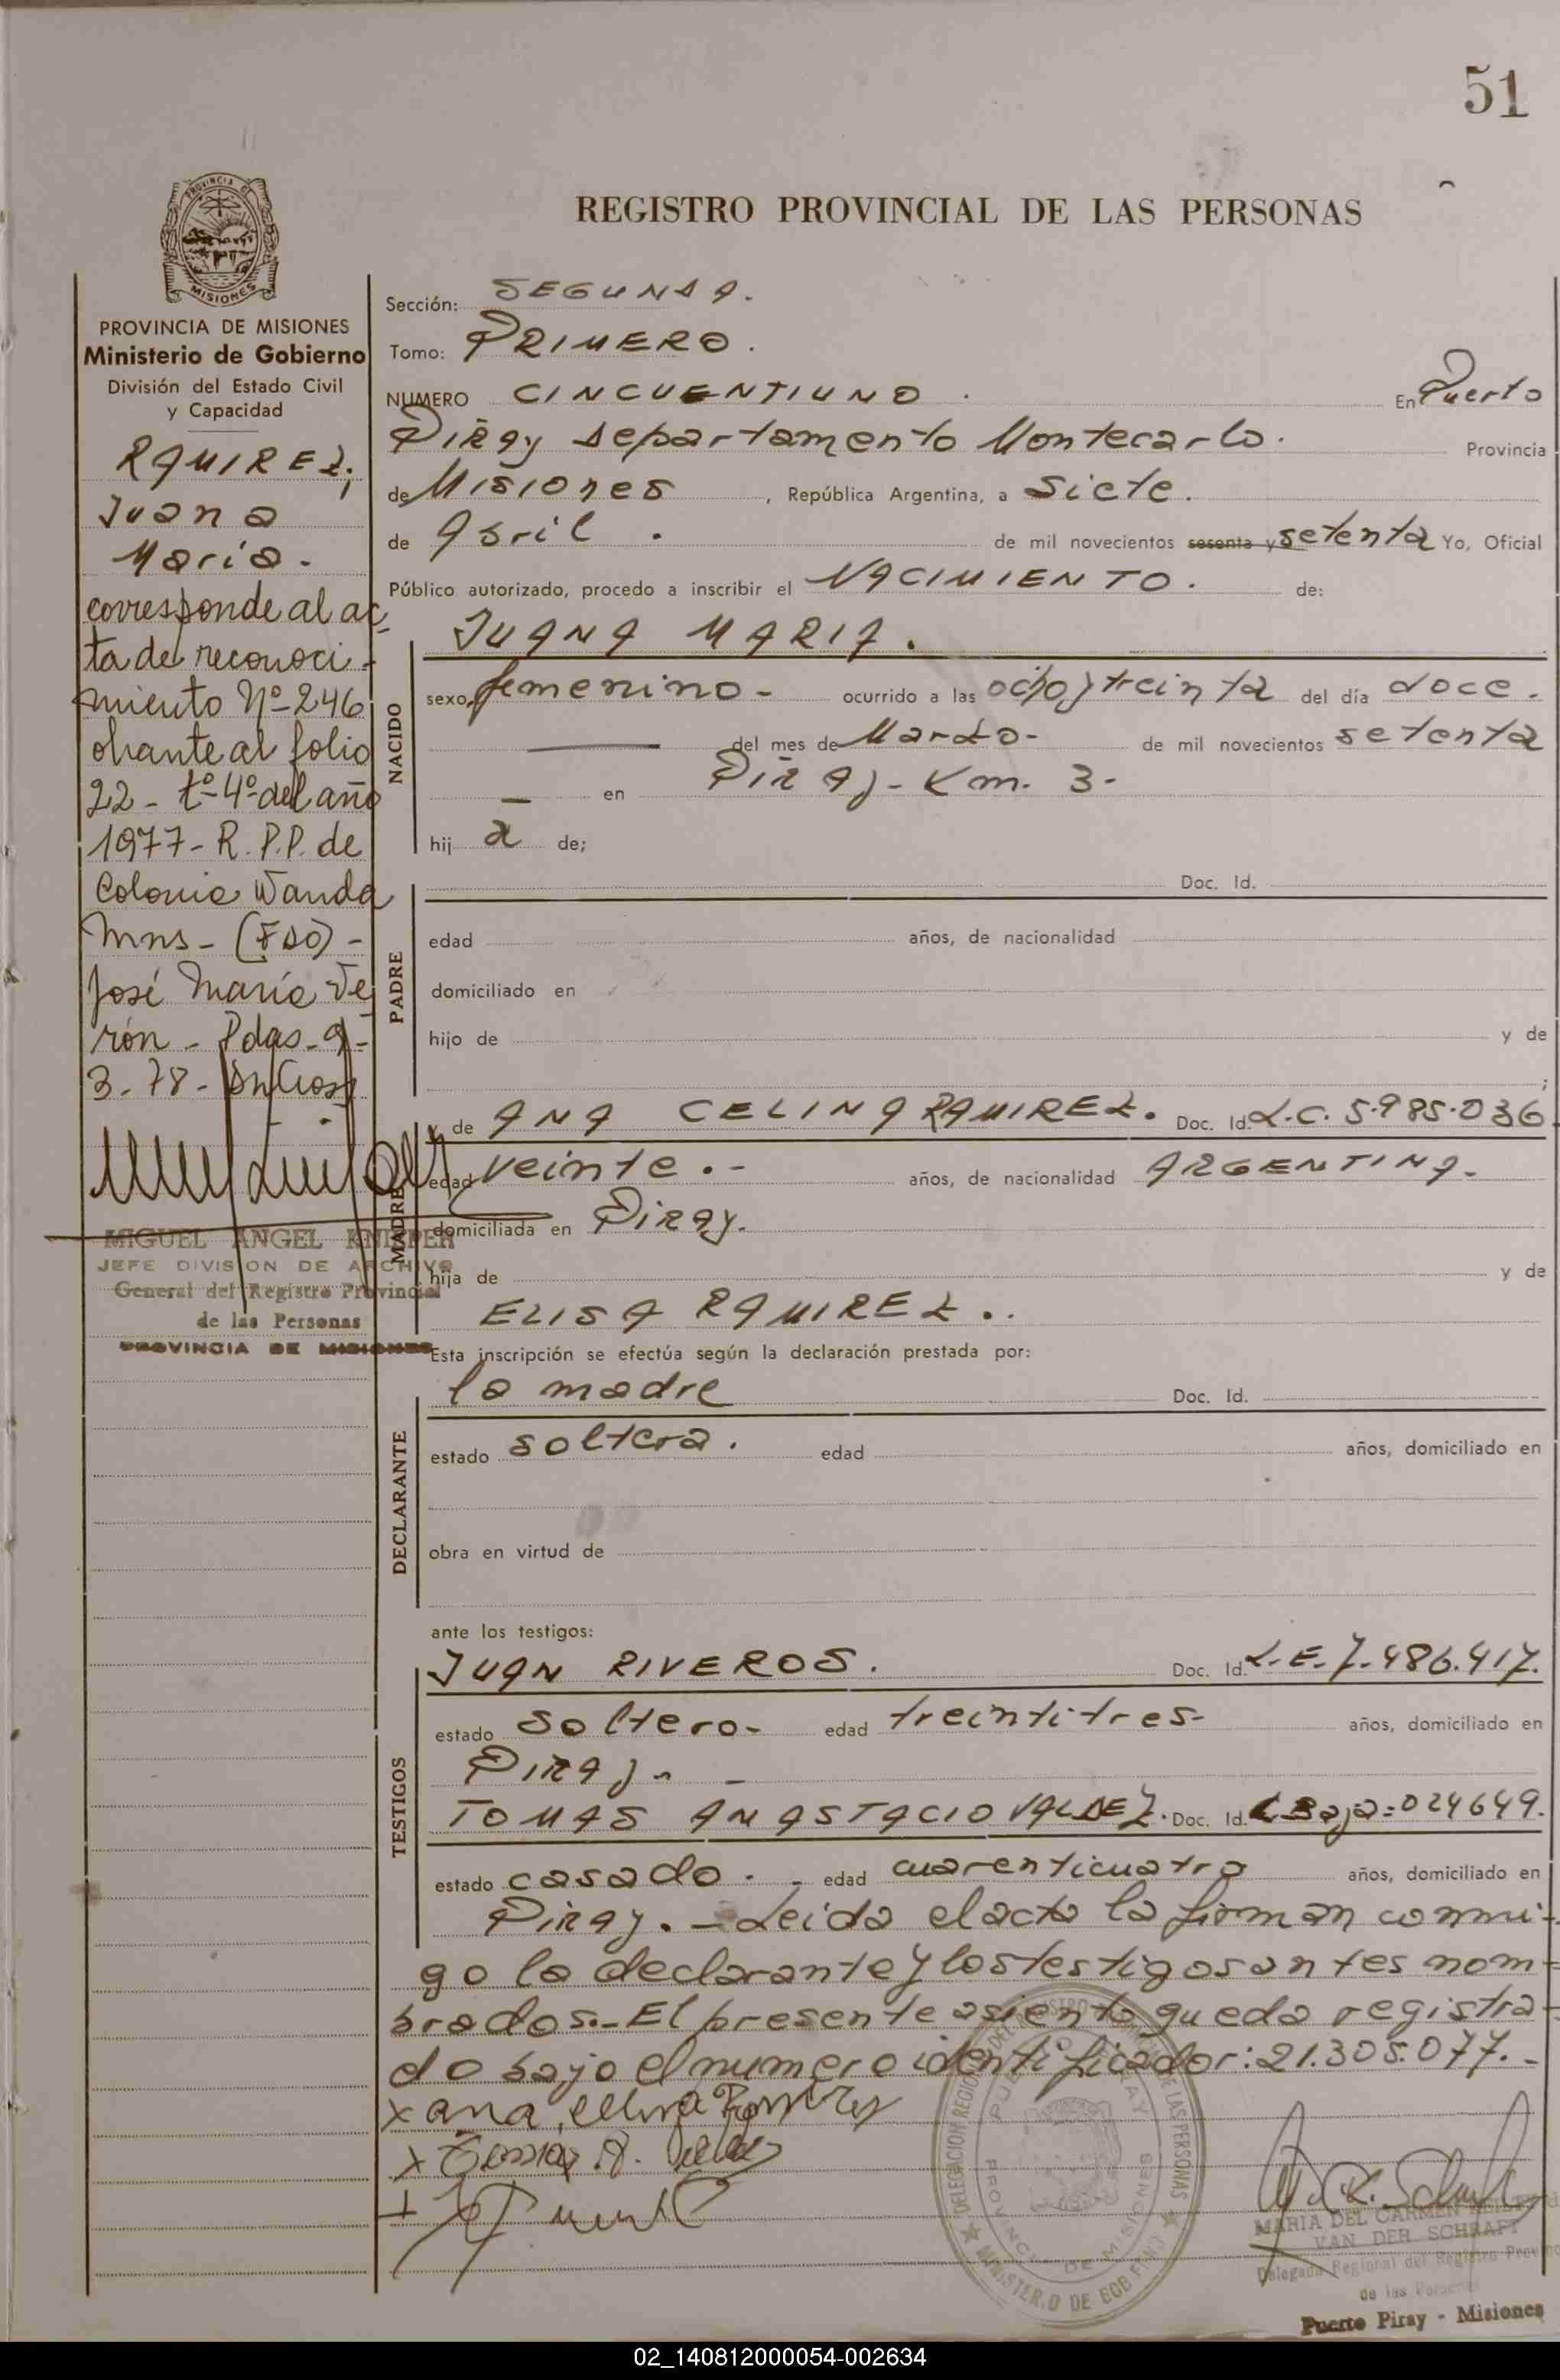 51
REGISTRO PROVINCIAL DE LAS PERSONAS
PROVINCIA DE MISIONES
Ministerio de Gobierno
División del Estado Civil
y Capacidad
RAMIREZ,
Juana
Maria.
corresponde al ac
ta de reconoci-
miento Nº 246
obrante al folio
22 - tº 4º del año
1977 - R. P.P. de
Colonia Wanda
Mns - (FDO) -
José María Ve
rón - Pdas - 9 -
3 - 78 -
MIGUEL ANGEL KNISPER
JEFE DIVISION DE ARCHIVO
General del Registro Provincial
de las Personas
PROVINCIA DE MISIONES
Sección: SEGUNDA.
Tomo: PRIMERO.
NUMERO CINCUENTIUNO. En Puerto
Piray departamento Montecarlo. Provincia
de Misiones, República Argentina, a Siete.
de Abril. de mil novecientos sesenta y setenta Yo, Oficial
Público autorizado, procedo a inscribir el NACIMIENTO. de:
JUANA MARIA.
NACIDO
sexo femenino - ocurrido a las ocho y treinta del día doce.
del mes de Marzo - de mil novecientos setenta
en Piray - Km. 3 -
hij a de;
PADRE
Doc. Id.
edad años, de nacionalidad
domiciliado en
hijo de y de
;
MADRE
y de ANA CELINA RAMIREZ. Doc. Id. L.C. 5.985.036
edad veinte. - años, de nacionalidad ARGENTINA.
domiciliada en Piray.
hija de y de
ELISA RAMIREZ..
Esta inscripción se efectúa según la declaración prestada por:
DECLARANTE
la madre Doc. Id.
estado soltera. edad años, domiciliado en
obra en virtud de
ante los testigos:
TESTIGOS
JUAN RIVEROS. Doc. Id. L.E. 7.486.417.
estado soltero - edad treintitres - años, domiciliado en
Piray -
TOMAS ANASTACIO VALDEZ. Doc. Id. 024649.
estado casado. - edad cuarenticuatro años, domiciliado en
Piray. - Leida el acta la firman conmi-
go la declarante y los testigos antes nom-
brados. - El presente asiento queda registra-
do bajo el numero identificador: 21.305.077. -
MARIA DEL CARMEN
VAN DER SCHRAFT
Delegada Regional del Registro Provinc
de las Personas
Puerto Piray - Misiones
02_140812000054-002634